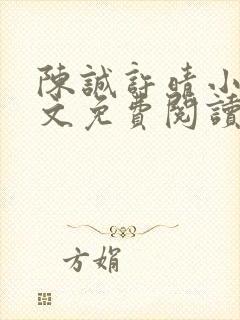 陳誠許晴小
文免費閱讀
方娟